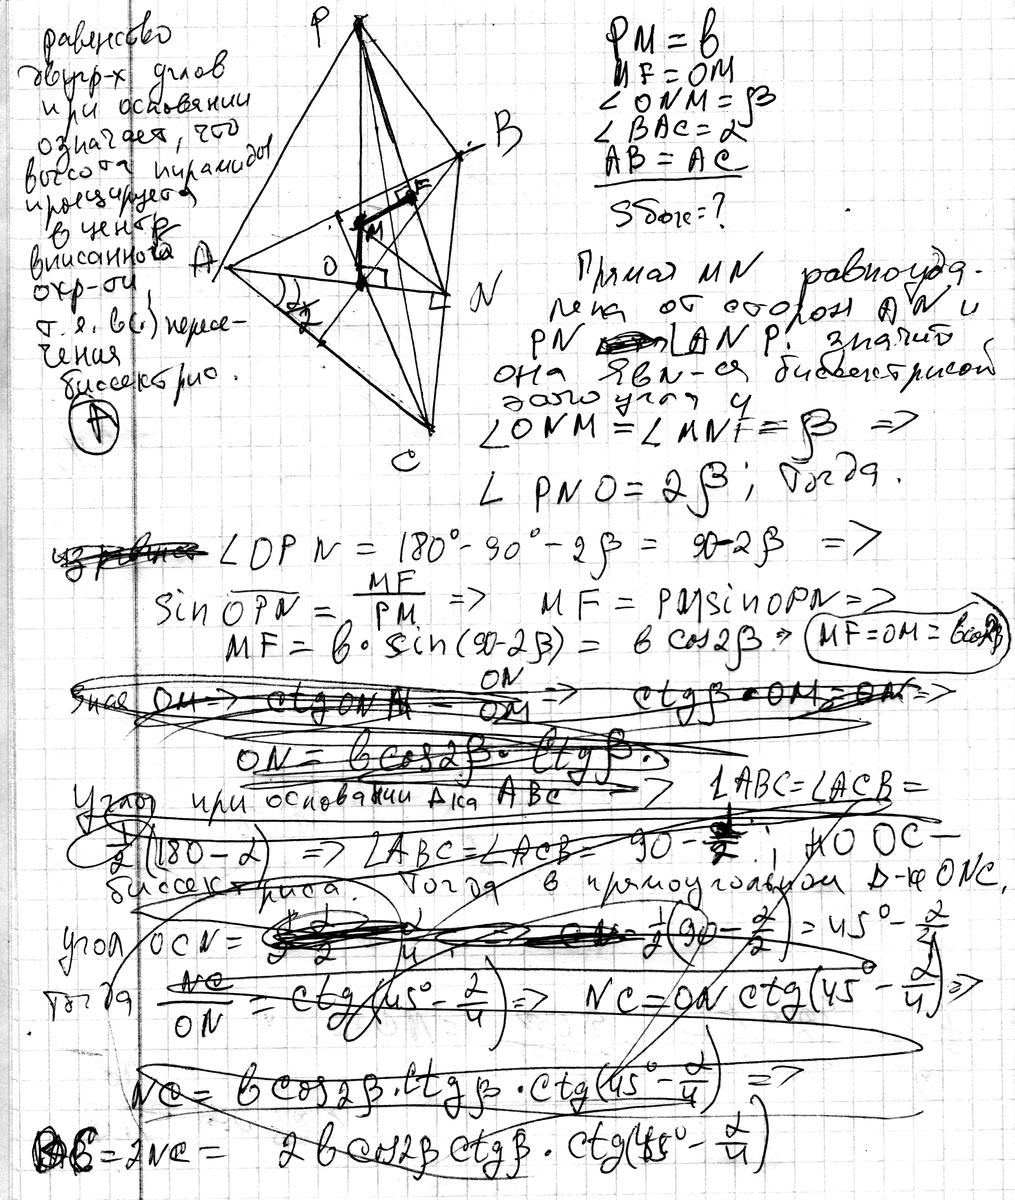 равенство
двугр-х углов
при основании
означает, что
высота пирамиды
проецируется
в центр
вписанной
окр-ти,
т.е. в (.) пересе-
чения
биссектрис.
A
P
B
F
M
A
O
N
α/2
C
PM = b
MF = OM
∠ ONM = β
∠ BAC = α
AB = AC
Sбок = ?
Прямая MN равноуда-
лена от сторон AN и
PN ∠ANP. значит
она явл-ся биссектрисой
этого угла и
∠ONM = ∠MNF = β =>
∠ PNO = 2β ; тогда.
∠OPN = 180° - 90° - 2β = 90 - 2β =>
sin OPN = MF/PM => MF = PM sin OPN =>
MF = b · sin(90-2β) = b cos2β => MF = OM = b cos2β
Зная OM => ctg ONM = ON/OM => ctgβ · OM = ON =>
ON = b cos2β · ctgβ.
Углы при основании Δка ABC => ∠ABC = ∠ACB =
1/2 (180 - α) => ∠ABC = ∠ACB = 90 - α/2 ; НО OC —
биссектриса. Тогда в прямоугольном Δ-ке ONC,
угол OCN = 1/2(90 - α/2) = 45° - α/4
Тогда NC/ON = ctg(45° - α/4) => NC = ON ctg(45° - α/4) =>
NC = b cos2β · ctgβ · ctg(45° - α/4) =>
BC = 2NC = 2b cos2β ctgβ · ctg(45° - α/4)